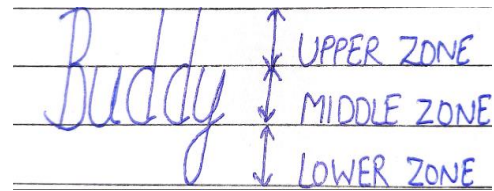 Buddy
UPPER ZONE
MIDDLE ZONE
LOWER ZONE